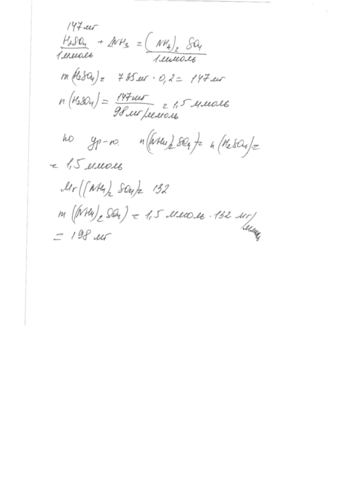 147 мг
H₂SO₄ + 2NH₃ = (NH₄)₂ SO₄
1ммоль 1ммоль
m(H₂SO₄) = 735мг · 0,2 = 147 мг
n(H₂SO₄) = 147мг / 98 мг/ммоль = 1,5 ммоль
по ур-ю. n((NH₄)₂SO₄) = n(H₂SO₄) =
= 1,5 ммоль
Mr((NH₄)₂ SO₄) = 132
m((NH₄)₂ SO₄) = 1,5 ммоль · 132 мг/ммоль
= 198 мг